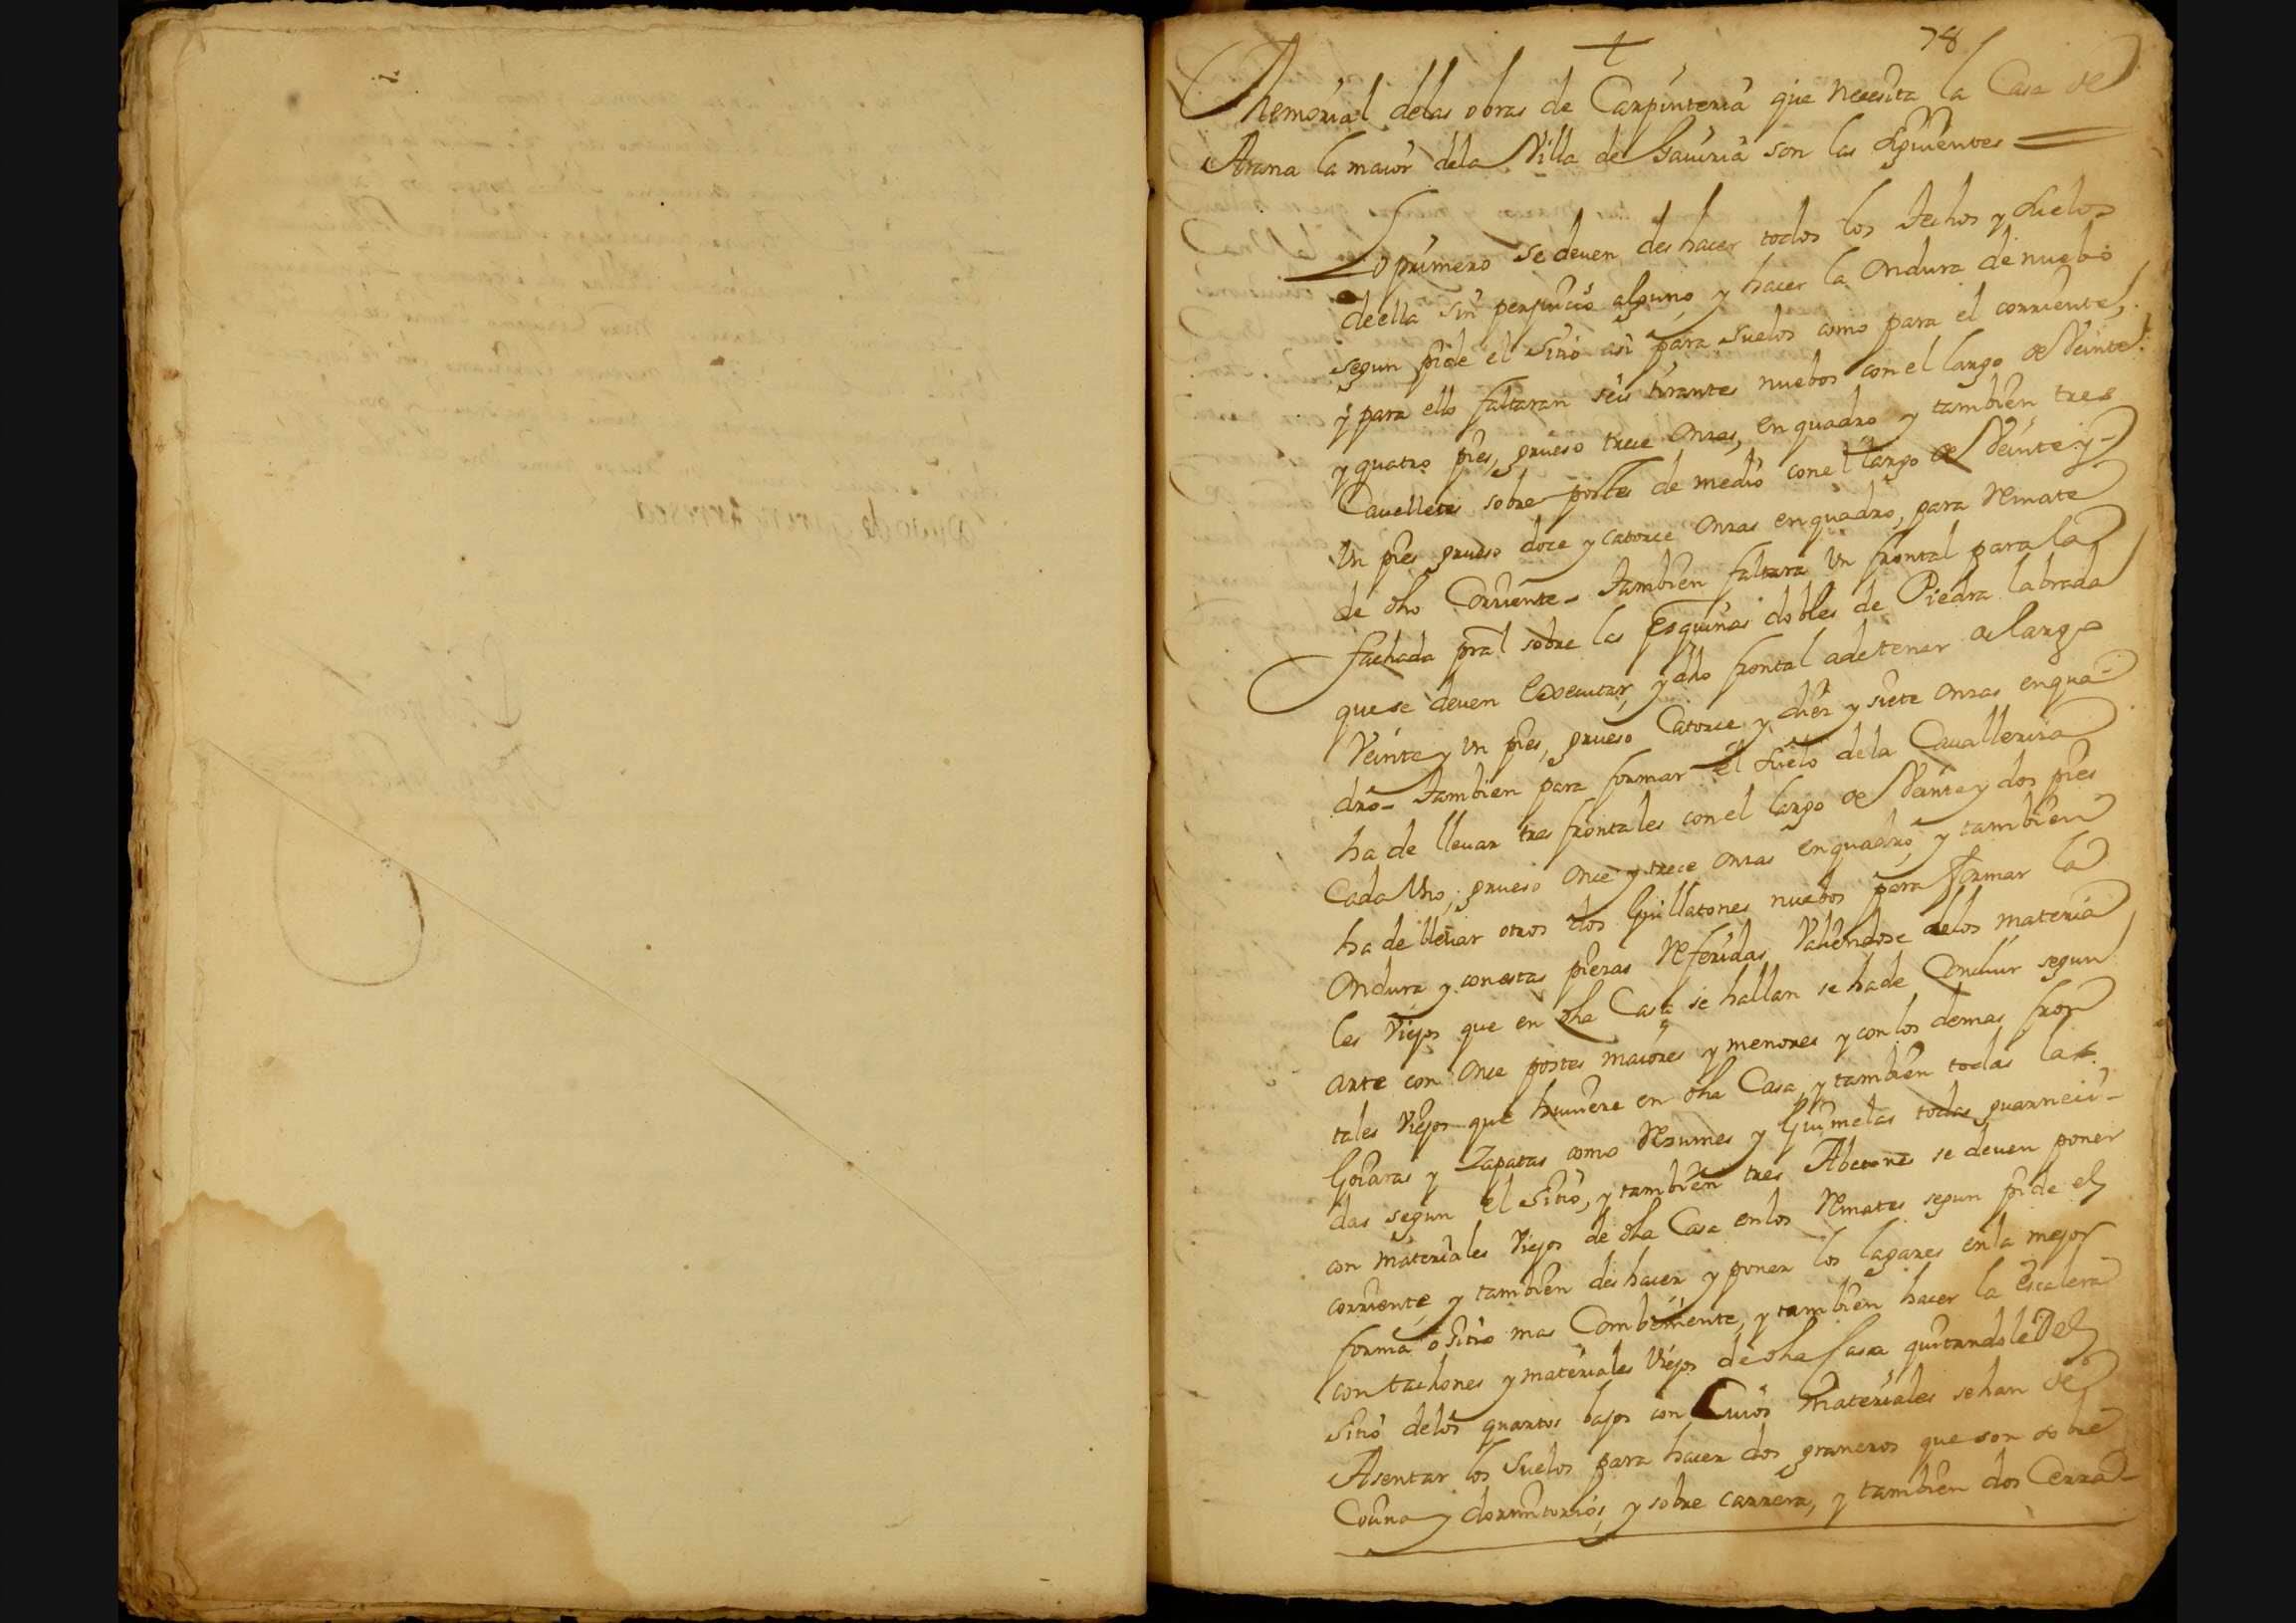 78
+
Memorial delas obras de Carpinteria que Necesita la Casa de
Arana la maior dela Villa de Gauiria son las siguientes
Lo primero se deuen deshacer todos los techos y suelos
deella sin perjuicio alguno, y hacer la Ondura de nuebo
segun pide el Sitio asi para suelos como para el corriente,
y para ello faltaran seis tirantes nuebos con el largo de Veinte
y quatro pies, grueso trece Onzas, en quadro y tambien tres
Cauelletes sobre postes de medio con el largo de Veinte y
Un pies grueso doce y catorce Onzas en quadro, para Remate
de dho Corriente - tambien faltara Un frontal para la
fachada pral sobre las Esquinas dobles de Piedra labrada
que se deuen Executar, y dho frontal adetener de largo
Veinte y Un pies, grueso Catorce y diez y siete Onzas en qua-
dro - tambien para formar el suelo dela Caualleriza
ha de lleuar tres frontales con el largo de Veinte y dos pies
Cada Uno, grueso Once y trece Onzas en quadro, y tambien
ha de lleuar otros dos Guillatones nuebos para formar la
Ondura y con estas piezas Referidas Valiendose delos materia
les Viejos que en dha Casa se hallan se hade Concluir segun
arte con Once postes maiores y menores y con los demas fron
tales Viejos que huuiere en dha Casa, y tambien todas las
Goiaras y Zapatas como Rezumes y Guimelas todas guarneci-
das segun el Sitio, y tambien tres Abetones se deuen poner
con materiales Viejos de dha Casa en los Remates segun pide el
corriente, y tambien deshacer y poner los lagares en la mejor
forma o sitio mas Combeniente, y tambien hacer la escalera
con tachones y materiales Viejos de dha Casa quitandole del
Sitio delos quartos bajos con Cuios Materiales sehan de
Asentar los Suelos para hacer dos graneros que son sobre
Cocina y dormitorios, y sobre carrera, y tambien dos Cerra-